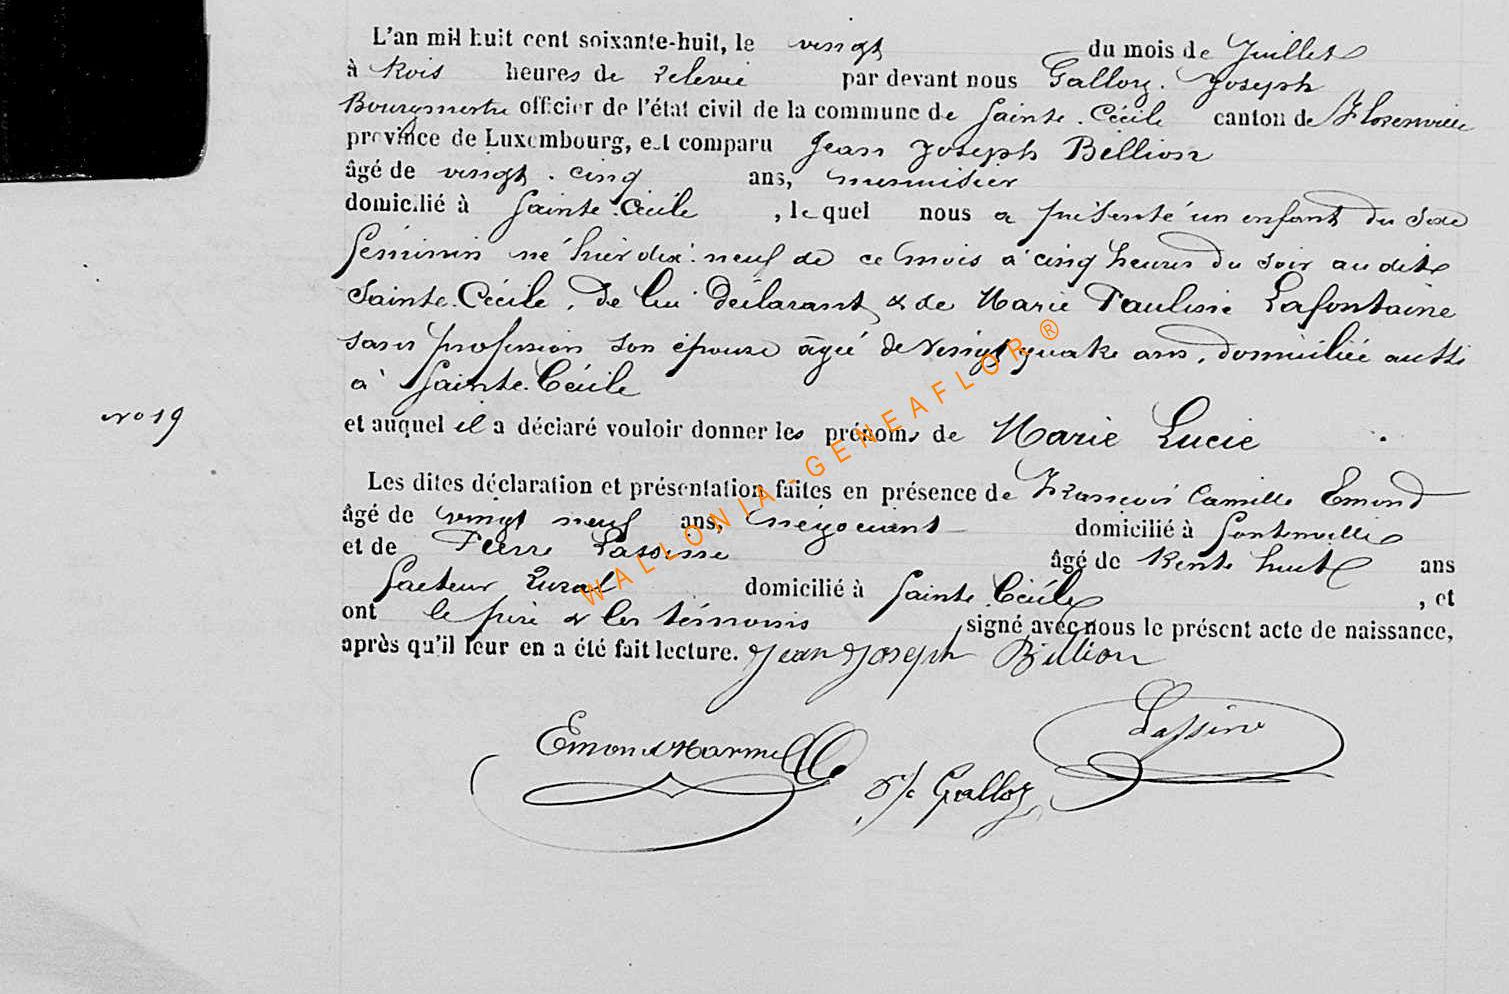 L'an mil huit cent soixante-huit, le vingt du mois de Juillet
à trois heures de relevée par devant nous Galloy Joseph
Bourgmestre officier de l'état civil de la commune de Sainte-Cécile canton de Florenville
province de Luxembourg, est comparu Jean Joseph Billion
âgé de vingt-cinq ans, menuisier
domicilié à Sainte-Cécile, lequel nous a présenté un enfant du sexe
féminin né hier dix-neuf de ce mois à cinq heures du soir audit
Sainte-Cécile, de lui déclarant & de Marie Pauline Lafontaine
sans profession son épouse âgée de vingt quatre ans, domiciliée aussi
à Sainte-Cécile
No 19
et auquel il a déclaré vouloir donner les prénoms de Marie Lucie
Les dites déclaration et présentation faites en présence de François Camille Emond
âgé de vingt neuf ans, négociant domicilié à Fontenoille
et de Pierre Lassine âgé de trente huit ans
facteur rural domicilié à Sainte Cécile, et
ont le père & les témoins signé avec nous le présent acte de naissance,
après qu'il leur en a été fait lecture. Jean Joseph Billion
Lassine
Emond
Galloy
WALLONIA-GENEAFLOR®